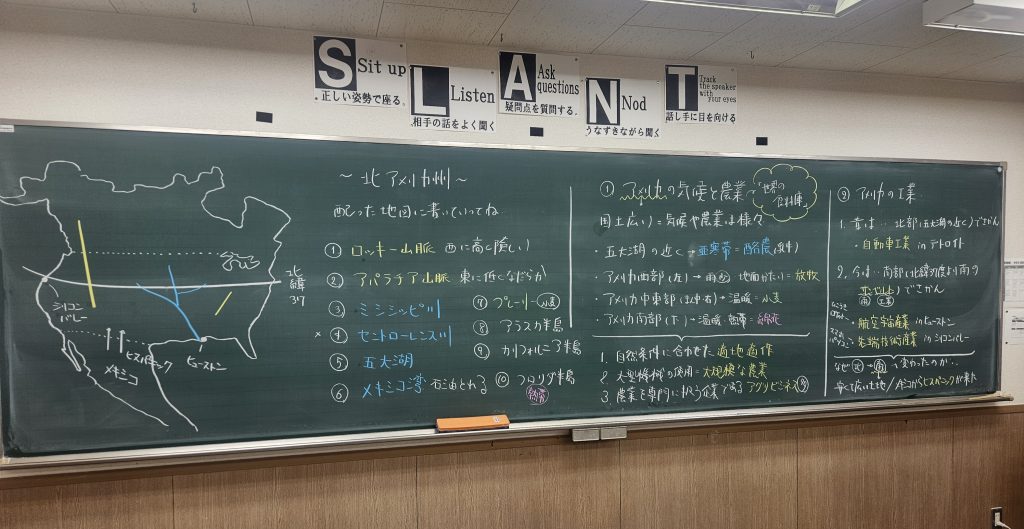 S Sit up
正しい姿勢で座る。
L Listen
相手の話をよく聞く
A Ask questions
疑問点を質問する。
N Nod
うなずきながら聞く
T Track the speaker with your eyes
話し手に目を向ける
北緯37
シリコンバレー
ヒスパニック
メキシコ
ヒューストン
〜北アメリカ州〜
配った地図に書いていってね
① ロッキー山脈 西に高く険しい
② アパラチア山脈 東に低くなだらか
③ ミシシッピ川
④ セントローレンス川
⑤ 五大湖
⑥ メキシコ湾 石油とれる
⑦ プレーリー 小麦
⑧ アラスカ半島
⑨ カリフォルニア半島
⑩ フロリダ半島
熱帯
① アメリカの気候と農業 "世界の食料庫"
国土広い=気候や農業は様々
・五大湖の近く→亜寒帯=酪農
・アメリカ西部(左)→雨少 地面かたい=放牧
・アメリカ中東部→温暖=小麦
・アメリカ南部(下)→温暖・熱帯=綿花
1. 自然条件に合わせた適地適作
2. 大型機械の使用=大規模な農業
3. 農業を専門に扱う企業であるアグリビジネス
② アメリカの工業
1. 昔は‥北部(五大湖の近く)でさかん
・自動車工業 in デトロイト
2. 今は‥南部(北緯37度より南の
サンベルト)でさかん
・航空宇宙産業 in ヒューストン
・先端技術産業 in シリコンバレー
なぜ北→南へ変わったのか‥
安くて広い土地/メキシコからヒスパニックが来た